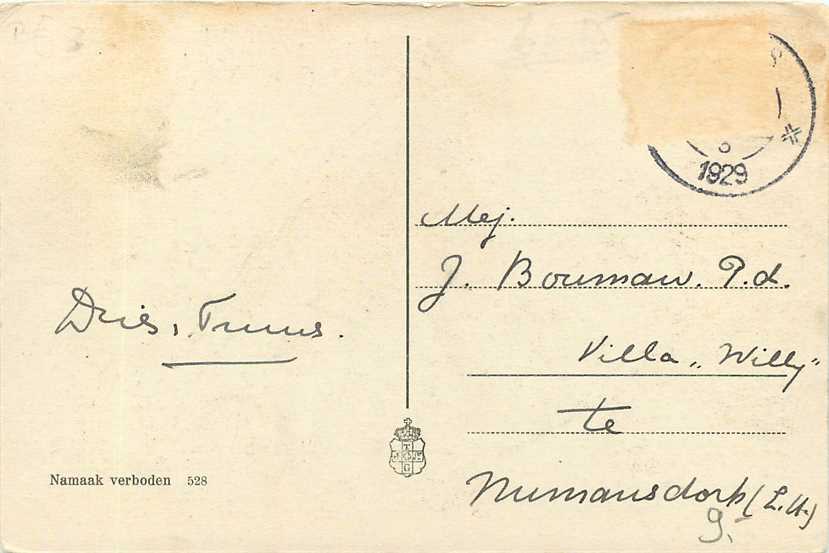 1929
Mej.
J. Bouman. P.d.
Villa „Willy”
te
Numansdorp (Z.H.)
9.-
Dries, Truus.
Namaak verboden 528